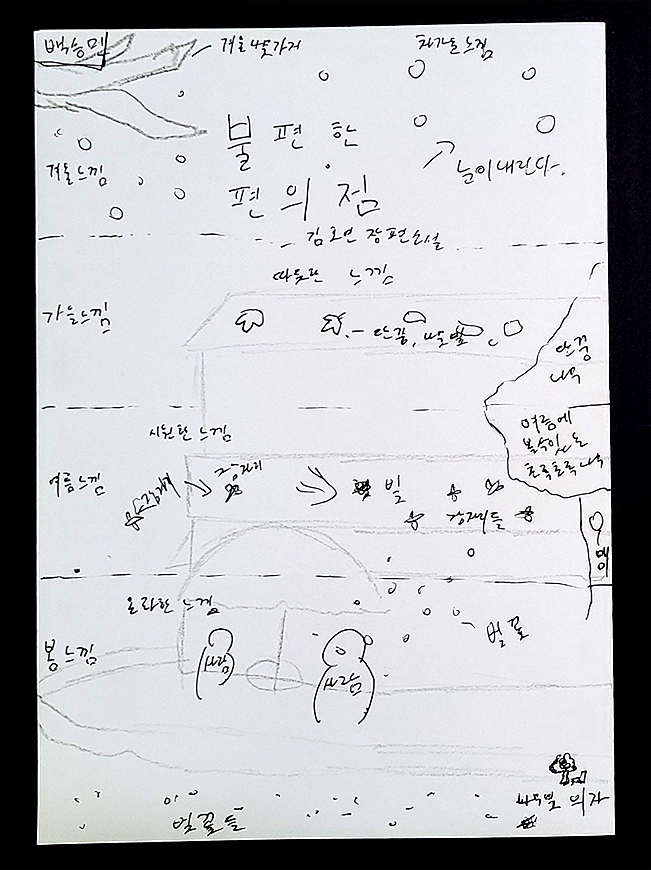 백승멘
겨울 나뭇가지
차가운 느낌
불편한
눈이 내린다.
겨울느낌
편의점
김호연 장편소설
따뜻한 느낌
가을느낌
단풍,
단풍
나무
시원한 느낌
여름에
볼수있는
초록초록나무
여름느낌
잠자리
잠자리
빌
잠자리들
매미
온화한 느낌
벚꽃
봄느낌
사람
사람
벚꽃들
의자